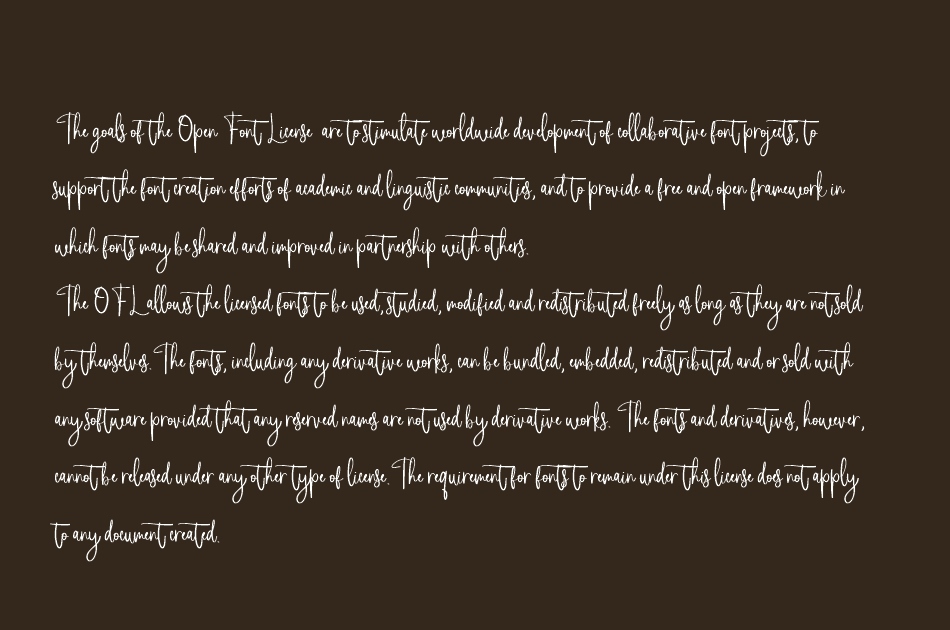 The goals of the Open Font License are to stimulate worldwide development of collaborative font projects, to
support the font creation efforts of academic and linguistic communities, and to provide a free and open framework in
which fonts may be shared and improved in partnership with others.
The OFL allows the licensed fonts to be used, studied, modified and redistributed freely as long as they are not sold
by themselves. The fonts, including any derivative works, can be bundled, embedded, redistributed and or sold with
any software provided that any reserved names are not used by derivative works. The fonts and derivatives, however,
cannot be released under any other type of license. The requirement for fonts to remain under this license does not apply
to any document created.